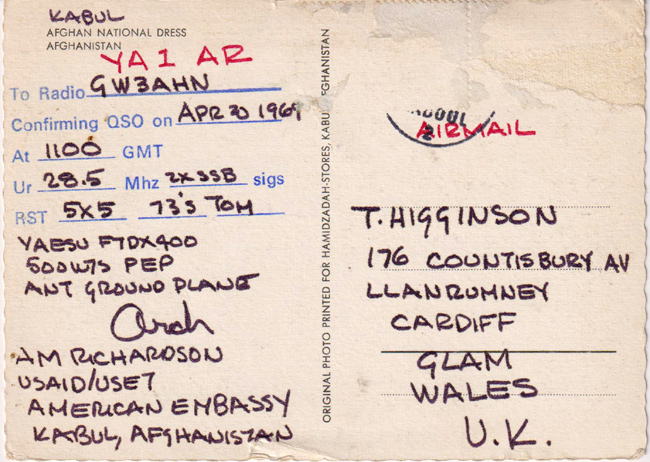 KABUL
AFGHAN NATIONAL DRESS
AFGHANISTAN
YA1AR
To Radio GW3AHN
Confirming QSO on APR 30 1969
At 1100 GMT
Ur 28.5 Mhz 2XSSB sigs
RST 5X5 73's TOM
YAESU FTDX400
500WTS PEP
ANT GROUND PLANE
Arch
AM RICHARDSON
USAID/USET
AMERICAN EMBASSY
KABUL, AFGHANISTAN
ORIGINAL PHOTO PRINTED FOR HAMIDZADAH-STORES, KABUL AFGHANISTAN
AIRMAIL
T. HIGGINSON
176 COUNTISBURY AV
LLANRUMNEY
CARDIFF
GLAM
WALES
U.K.